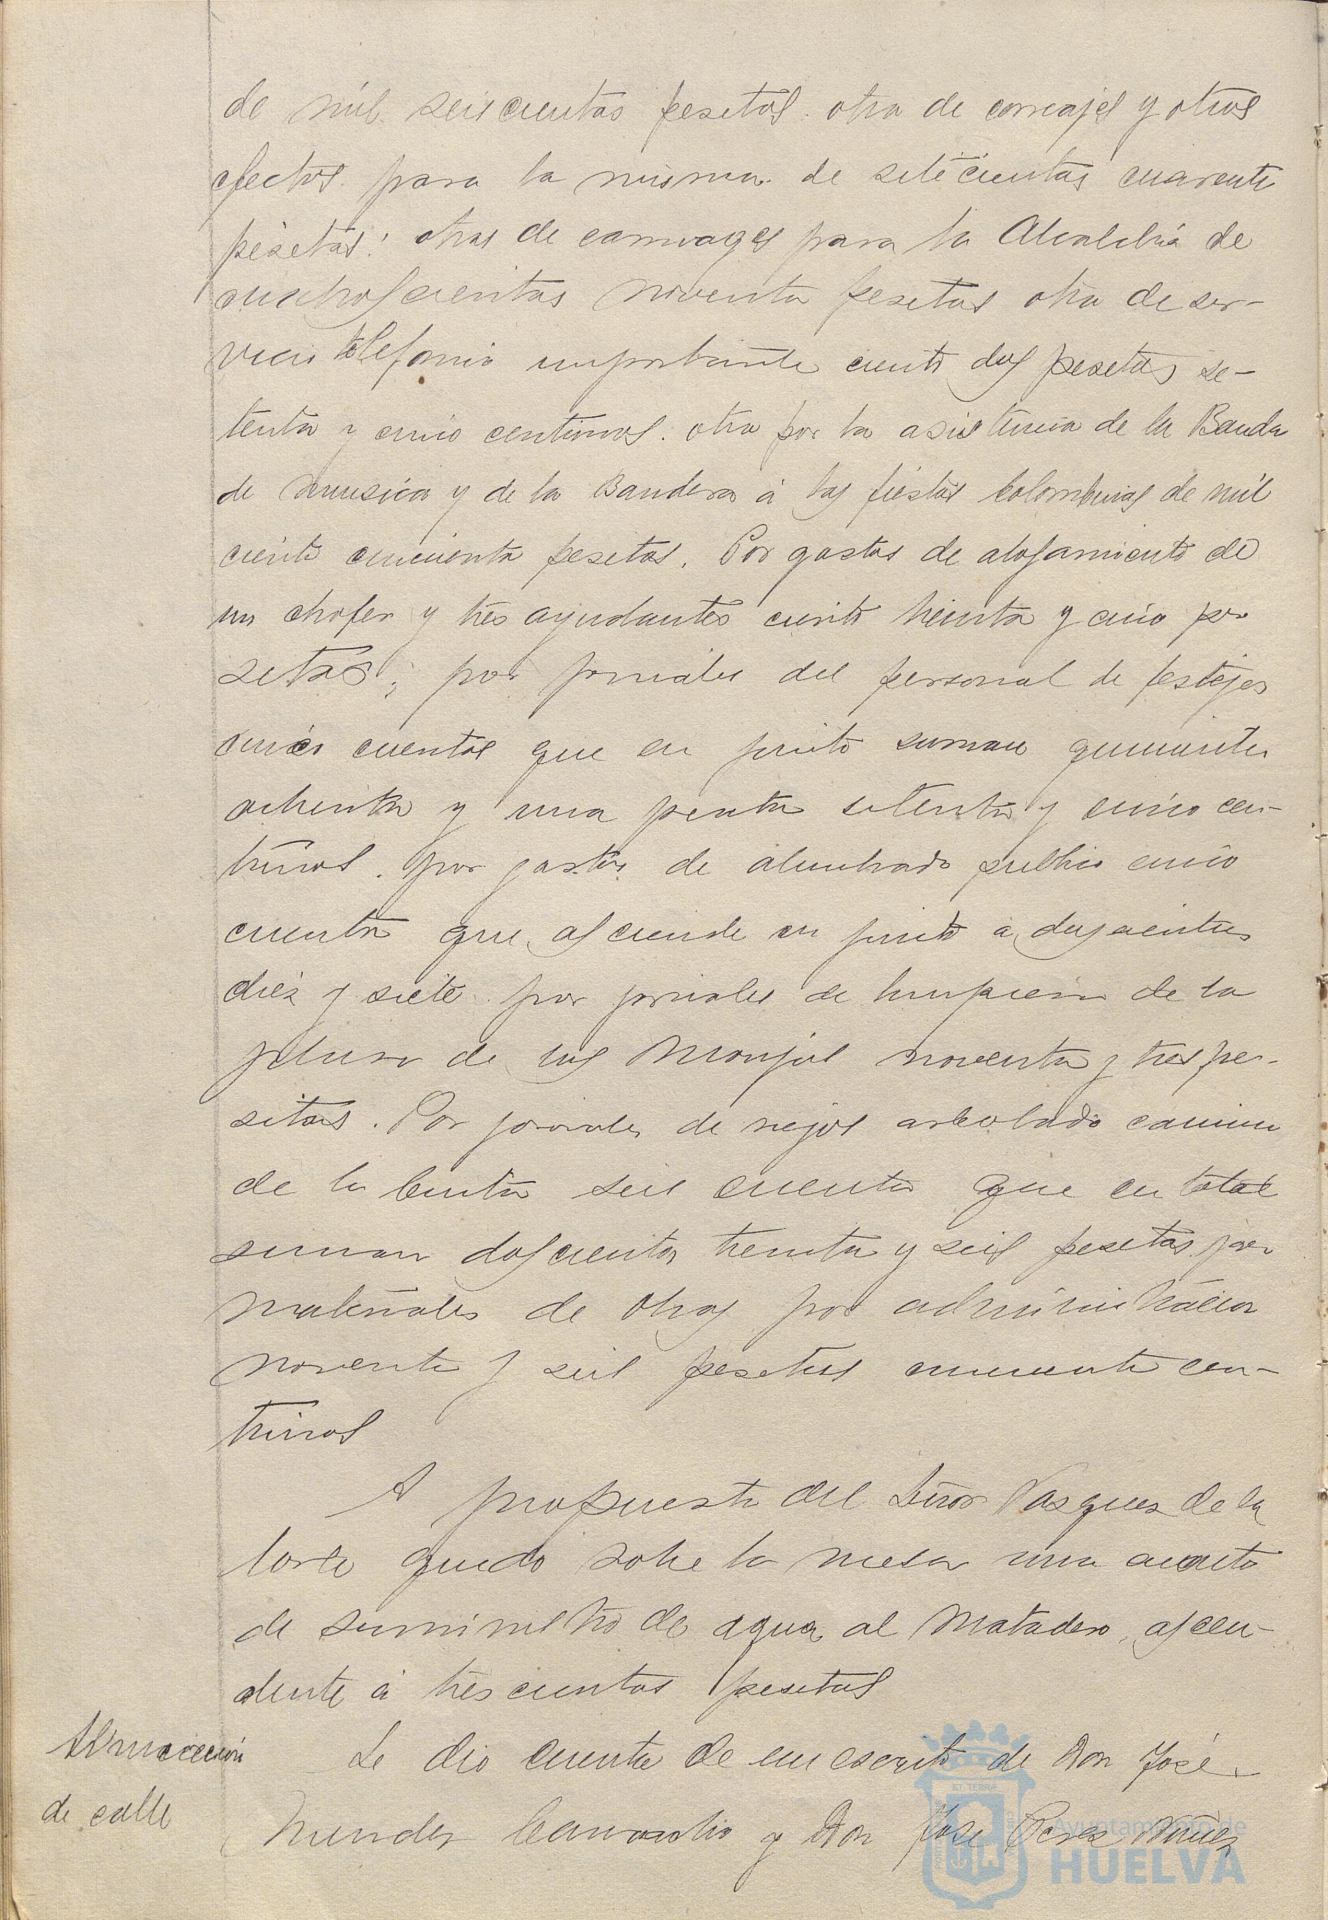 de mil seiscientas pesetas. otra de correajes y otros
efectos para la misma de setecientas cuarenta
pesetas: otras de carruages para la Alcaldia de
cuatroscientas noventa pesetas otra de ser-
vicio telefonico importante ciento dos pesetas se-
tenta y cinco centimos. otra por la asistencia de la Banda
de musica y de la Bandera á las fiestas Colombinas de mil
ciento cincuenta pesetas. Por gastos de alojamiento de
un chofer y tres ayudantes ciento treinta y cinco pe
setas; por jornales del personal de festejos
cinco cuentas que en junto suman quinientas
ochenta y una peseta setenta y cinco cen-
timos. por gastos de alumbrado publico cinco
cuenta que asciende en junto a doscientas
diez y siete por jornales de limpieza de la
plaza de las Monjas noventa y tres pe-
setas. Por jornales de riegos arbolado camino
de la Cinta seis cuenta que en total
suman doscientas treinta y seis pesetas por
materiales de obras por administracion
noventa y seis pesetas cincuenta cen-
timos
A propuesta del Señor Vasquez de la
Corte quedó sobre la mesa una cuenta
de suministro de agua al Matadero, ascen-
dente á trescientas pesetas
Alineación
de calle
Se dio cuenta de un escrito de Don José
Mendez Camacho y Don José Perez Nuñez
Ayuntamiento de
HUELVA